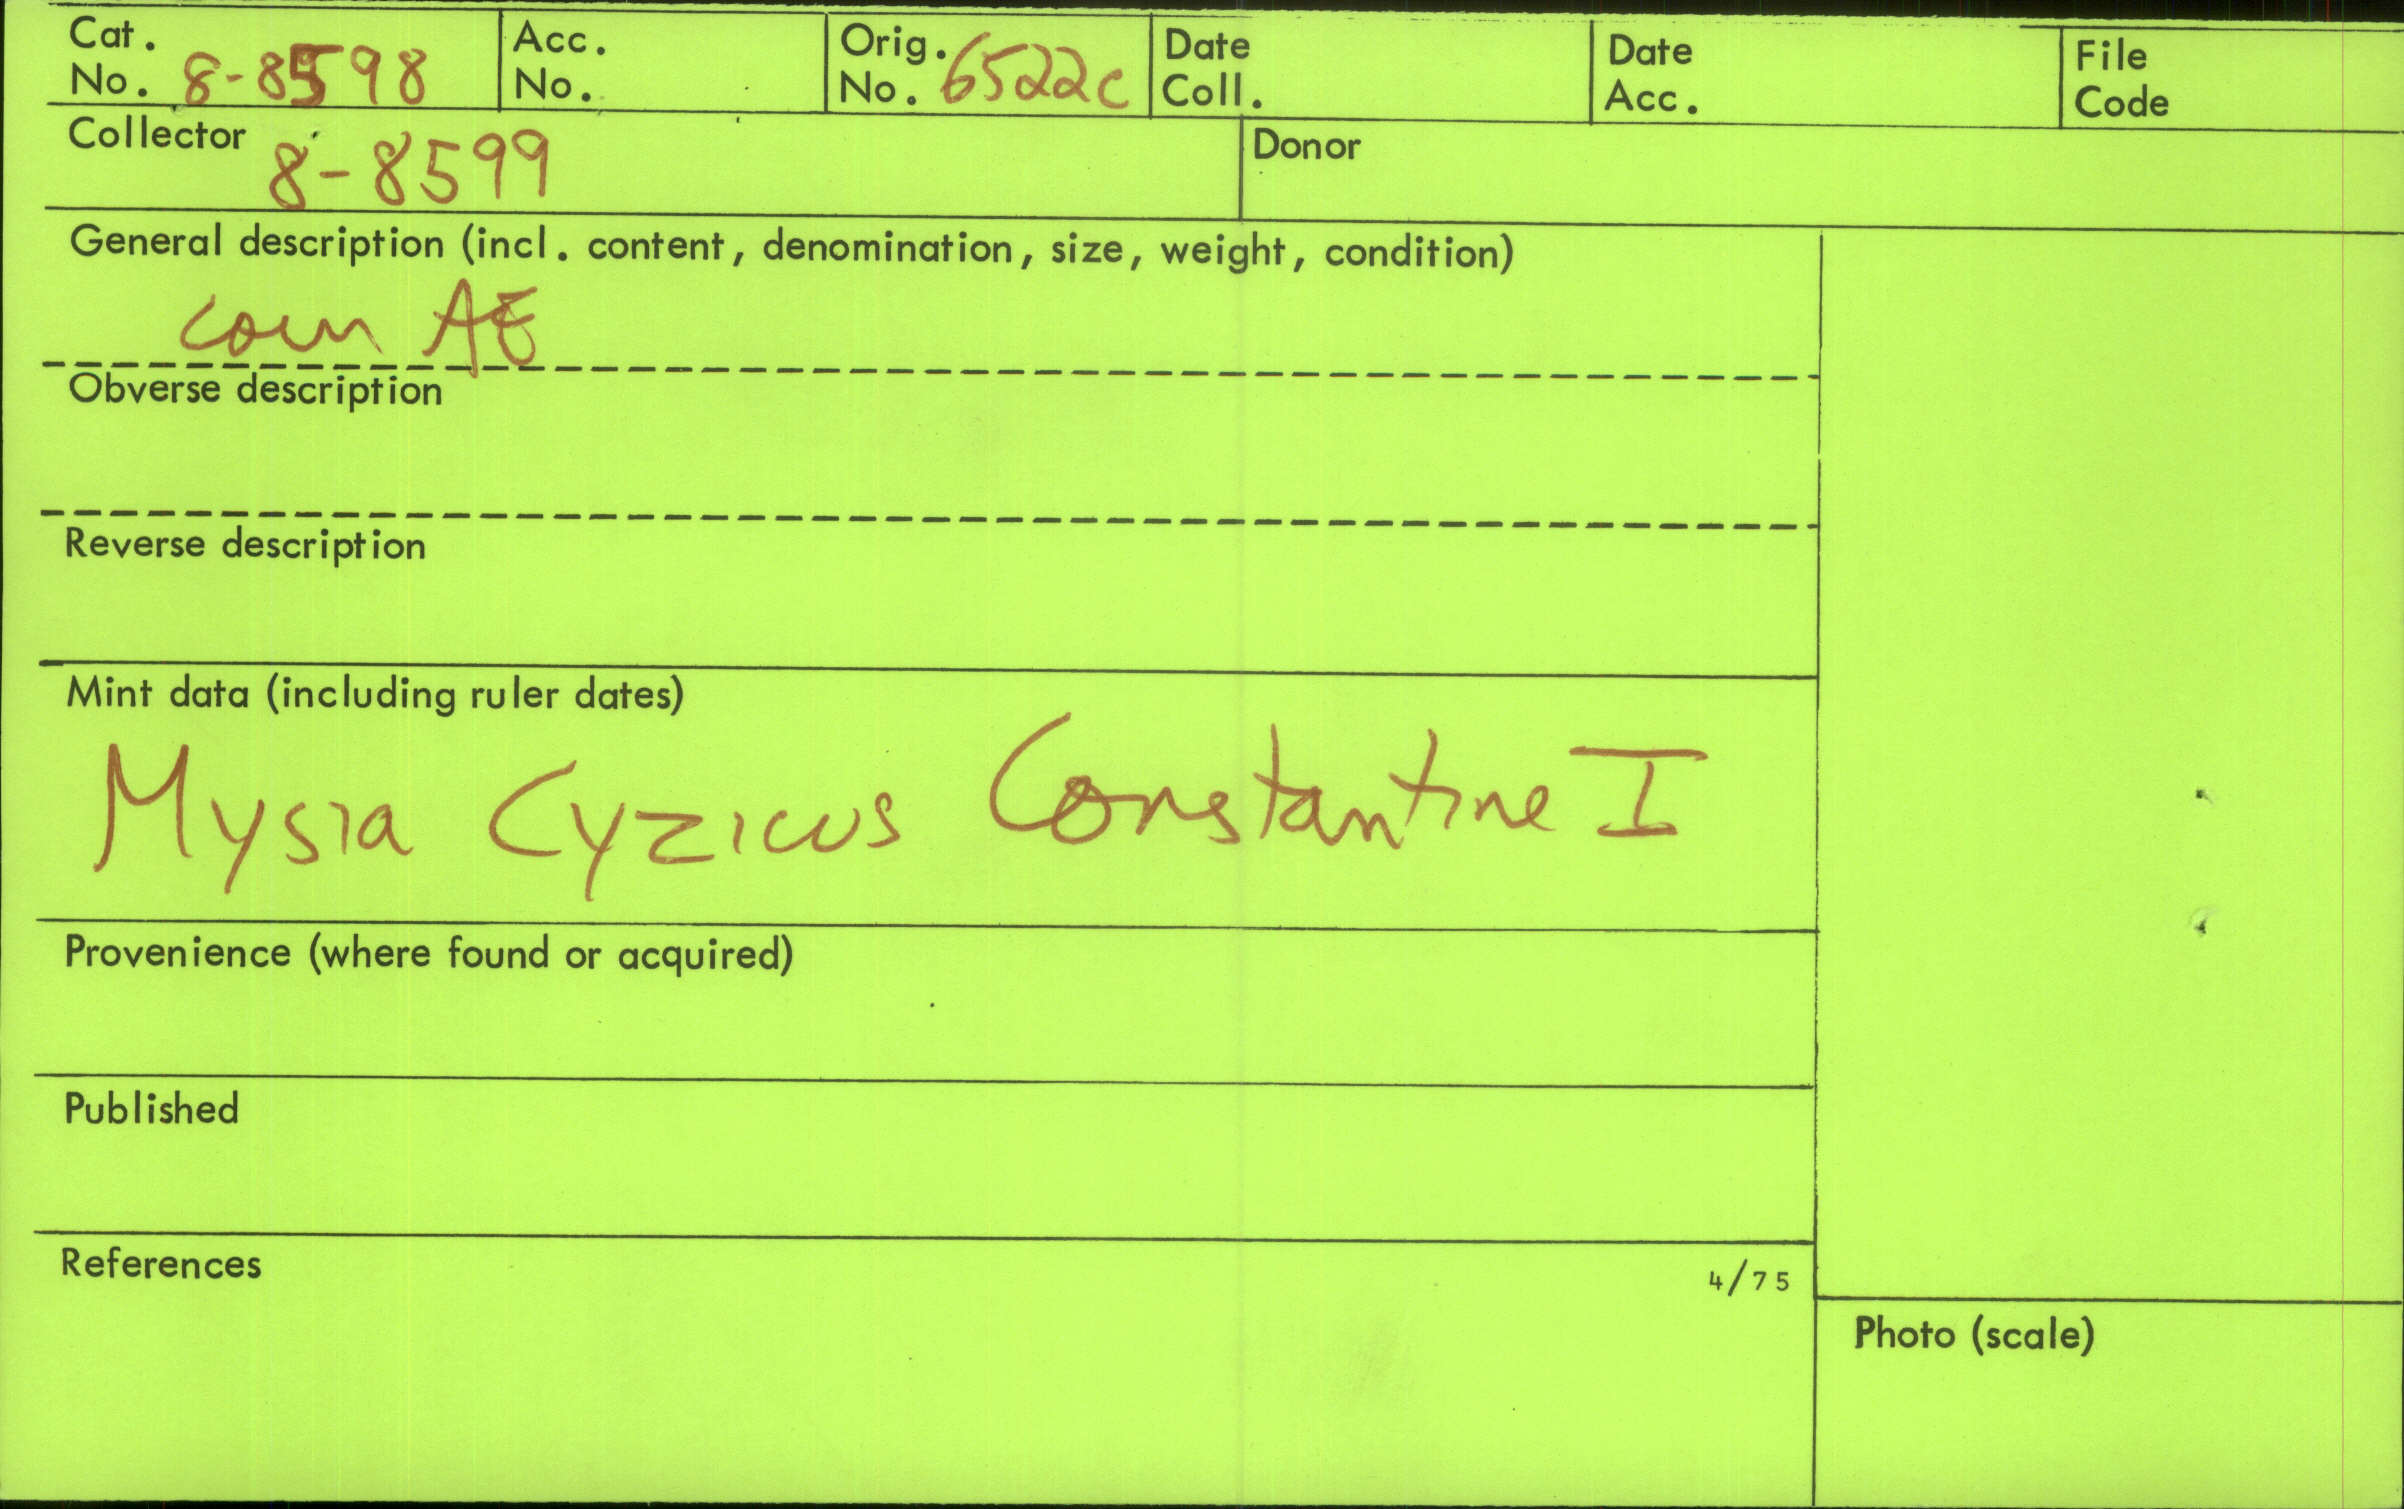 Cat. No. 8-8598
Acc. No.
Orig. No. 6522c
Date Coll.
Date Acc.
File Code
Collector 8-8599
Donor
General description (incl. content, denomination, size, weight, condition)
coin AE
Obverse description
Reverse description
Mint data (including ruler dates)
Mysia Cyzicus Constantine I
Provenience (where found or acquired)
Published
References
4/75
Photo (scale)